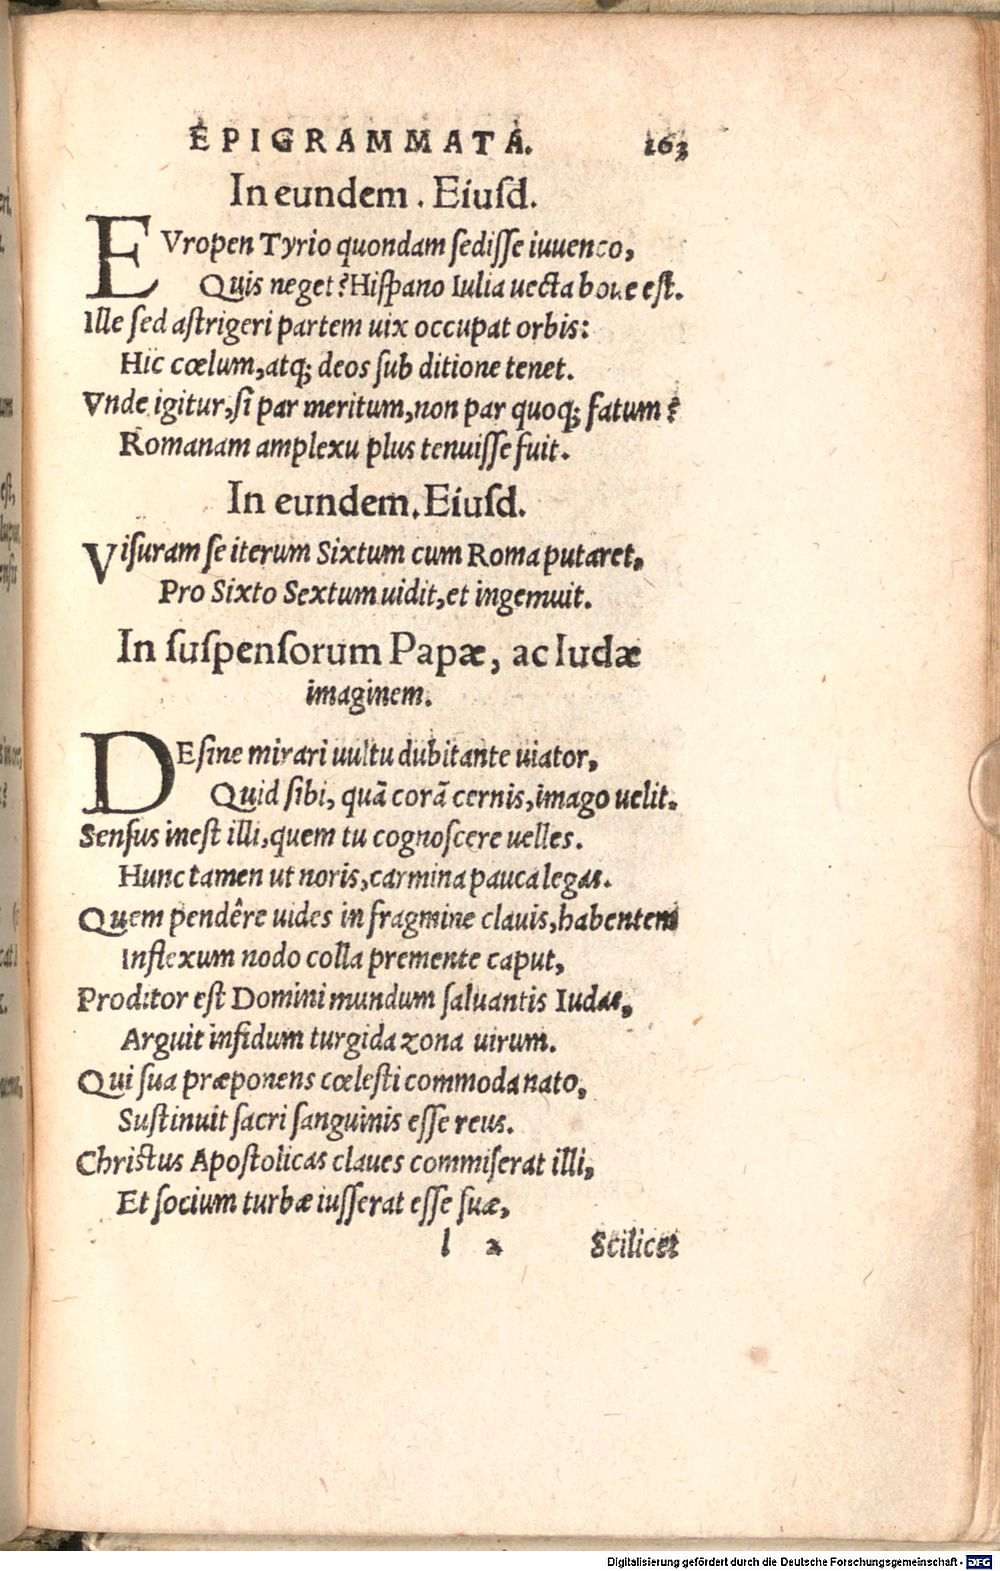 EPIGRAMMATA. 163
In eundem. Eiusd.
EVropen Tyrio quondam sedisse iuuenco,
Quis neget? Hispano Iulia uecta boue est.
Ille sed astrigeri partem uix occupat orbis:
Hic cœlum, atq; deos sub ditione tenet.
Vnde igitur, si par meritum, non par quoq; fatum?
Romanam amplexu plus tenuisse fuit.
In eundem. Eiusd.
Visuram se iterum Sixtum cum Roma putaret,
Pro Sixto Sextum uidit, et ingemuit.
In suspensorum Papæ, ac Iudæ
imaginem.
DEsine mirari uultu dubitante uiator,
Quid sibi, quā corā cernis, imago uelit.
Sensus inest illi, quem tu cognoscere uelles.
Hunc tamen ut noris, carmina pauca legas.
Quem pendêre uides in fragmine clauis, habentem
Inflexum nodo colla premente caput,
Proditor est Domini mundum saluantis Iudas,
Arguit infidum turgida zona uirum.
Qui sua præponens cœlesti commoda nato,
Sustinuit sacri sanguinis esse reus.
Christus Apostolicas claues commiserat illi,
Et socium turbæ iusserat esse suæ,
l 2 Scilicet
Digitalisierung gefördert durch die Deutsche Forschungsgemeinschaft - DFG